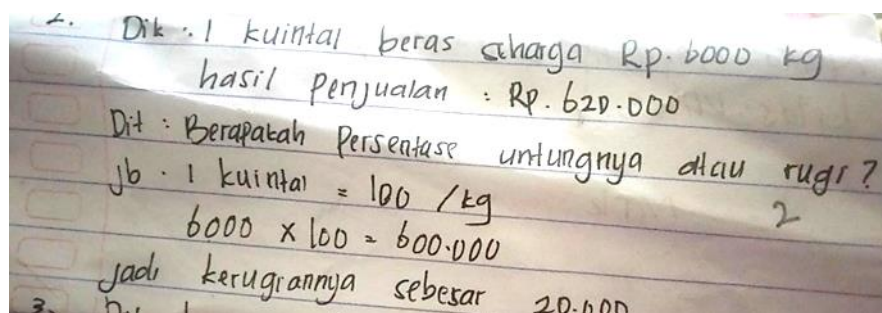 2. Dik : 1 kuintal beras seharga Rp. 6000 kg
hasil penjualan : Rp. 620.000
Dit : Berapakah Persentase untungnya atau rugi?
jb . 1 kuintal = 100 /kg
2
6000 x 100 = 600.000
jadi kerugiannya sebesar 20.000
3.